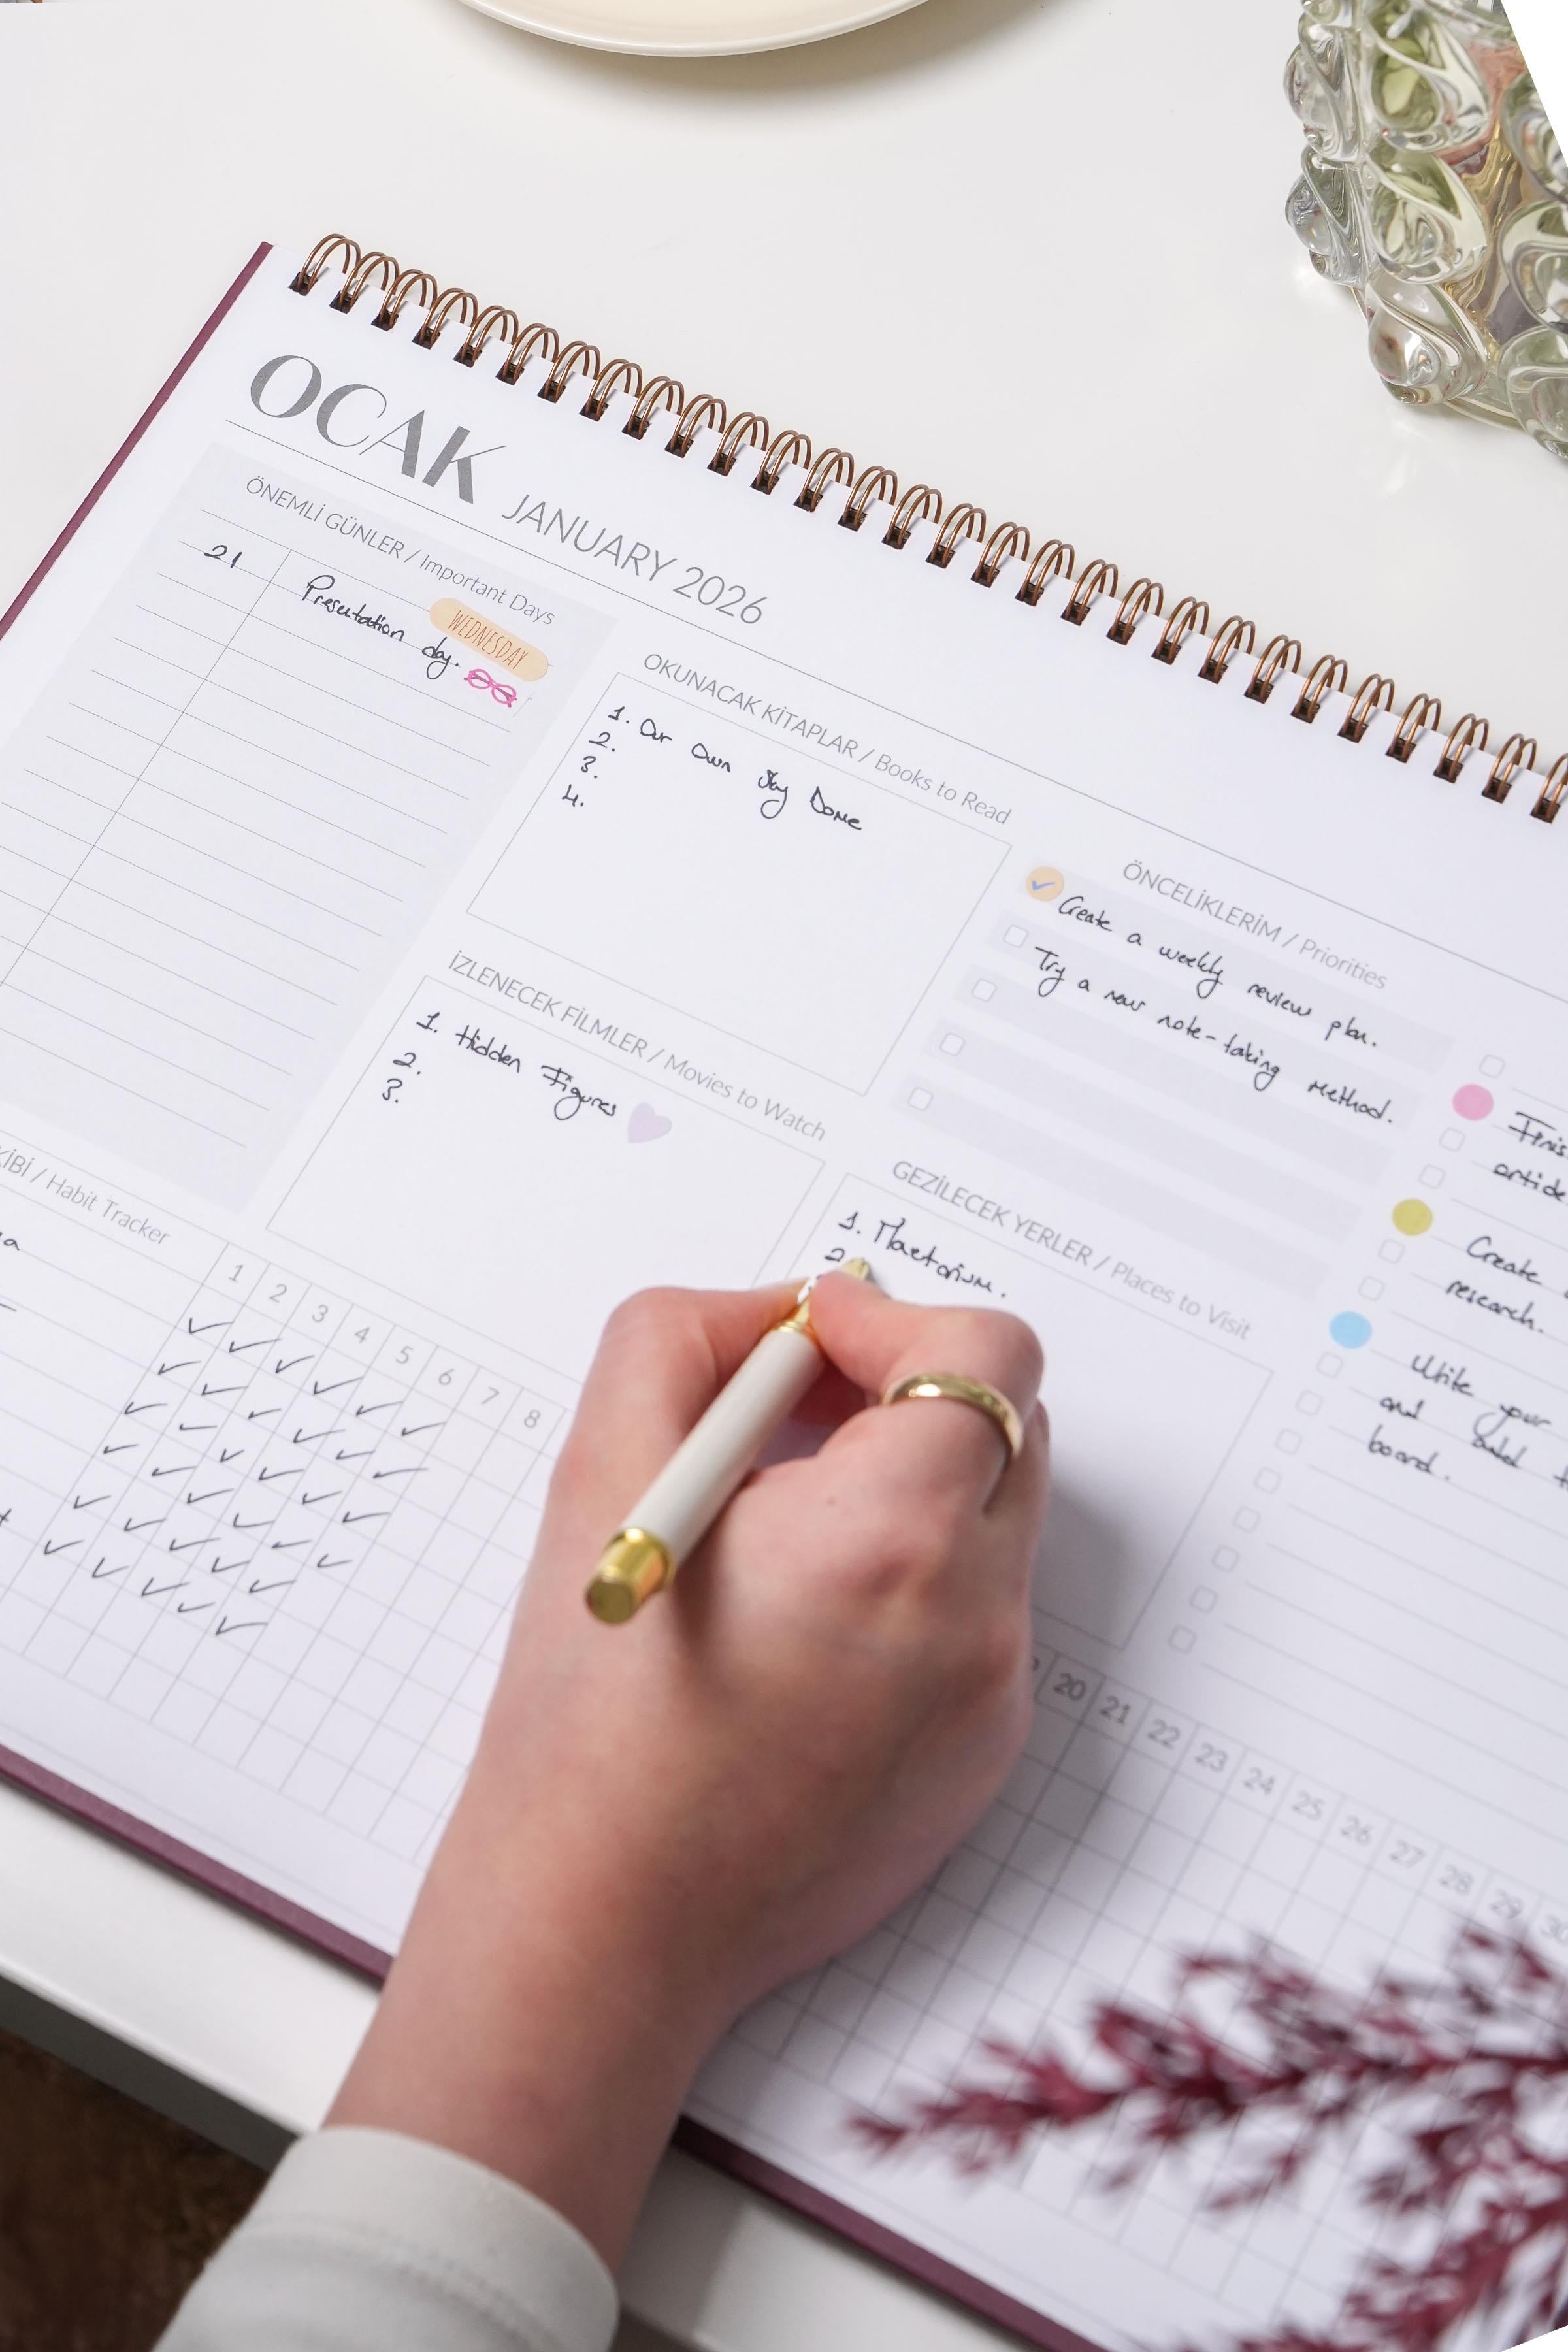 OCAK JANUARY 2026
ÖNEMLİ GÜNLER / Important Days
21 Presentation day.
WEDNESDAY
OKUNACAK KİTAPLAR / Books to Read
1. Our Own Sky Dome
2.
3.
4.
İZLENECEK FİLMLER / Movies to Watch
1. Hidden Figures
2.
3.
ÖNCELİKLERİM / Priorities
Create a weekly review plan.
Try a new note-taking method.
GEZİLECEK YERLER / Places to Visit
1. Maetorium.
2.
article
Create
research.
Write your
and add
board.
KİBİ / Habit Tracker
1 2 3 4 5 6 7 8
20 21 22 23 24 25 26 27 28 29 30